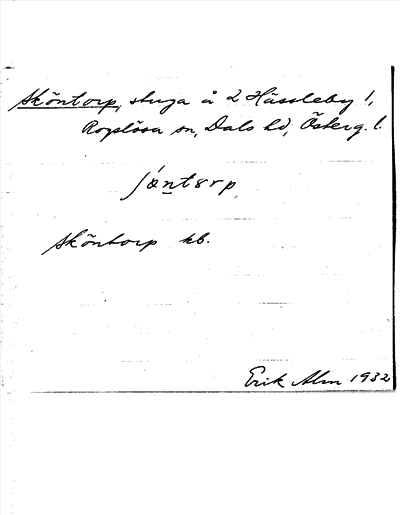 Sköntorp, stuga å 2 Hässleby !,
Rogslösa sn, Dals hd, Österg. l.
Sköntorp kb.
Erik Alm 1932